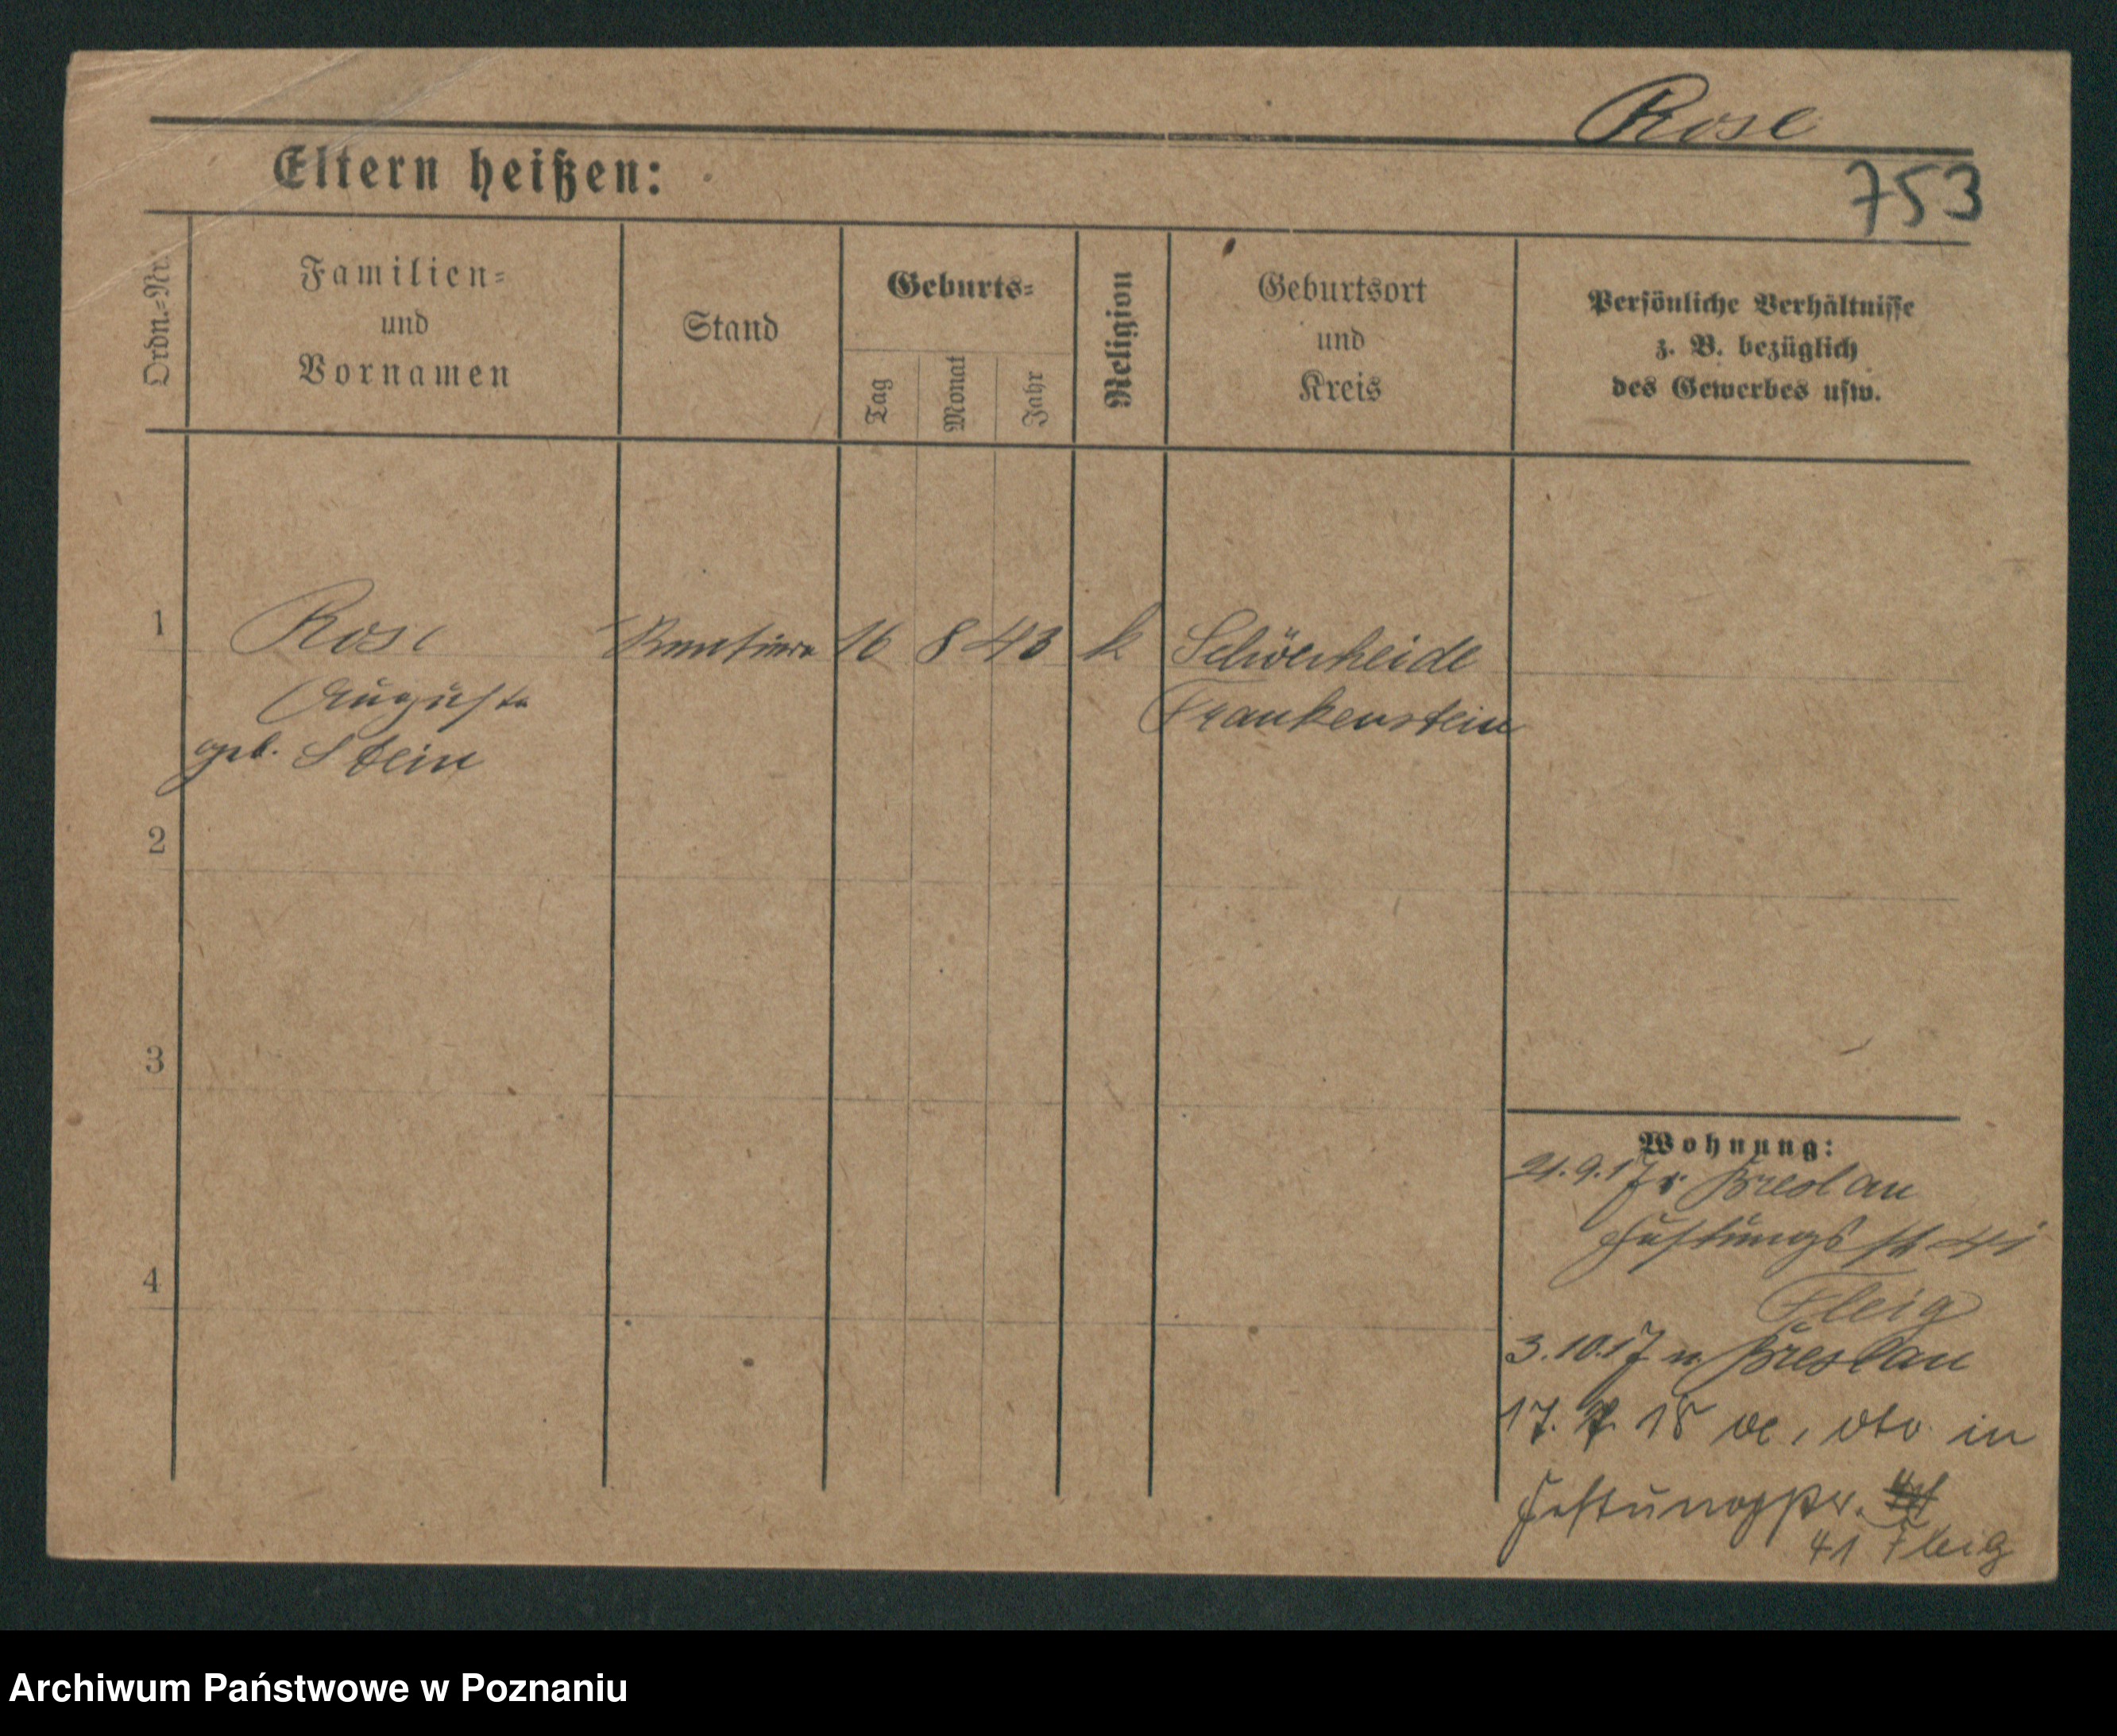 Rose
753
Eltern heißen:
Ordn.=Nr.
Familien=
und
Vornamen
Stand
Geburts=
Tag
Monat
Jahr
Religion
Geburtsort
und
Kreis
Persönliche Verhältnisse
z. B. bezüglich
des Gewerbes usw.
1 Rose Rentiere 16 8 43 k Schönheide
Auguste Frankenstein
geb. Stein
2
3
4
Wohnung:
21.9.17 v Breslau
Festungsstr 41
Fleig
3.10.17 n. Breslau
17. 18 in
41 Fleig
Archiwum Państwowe w Poznaniu